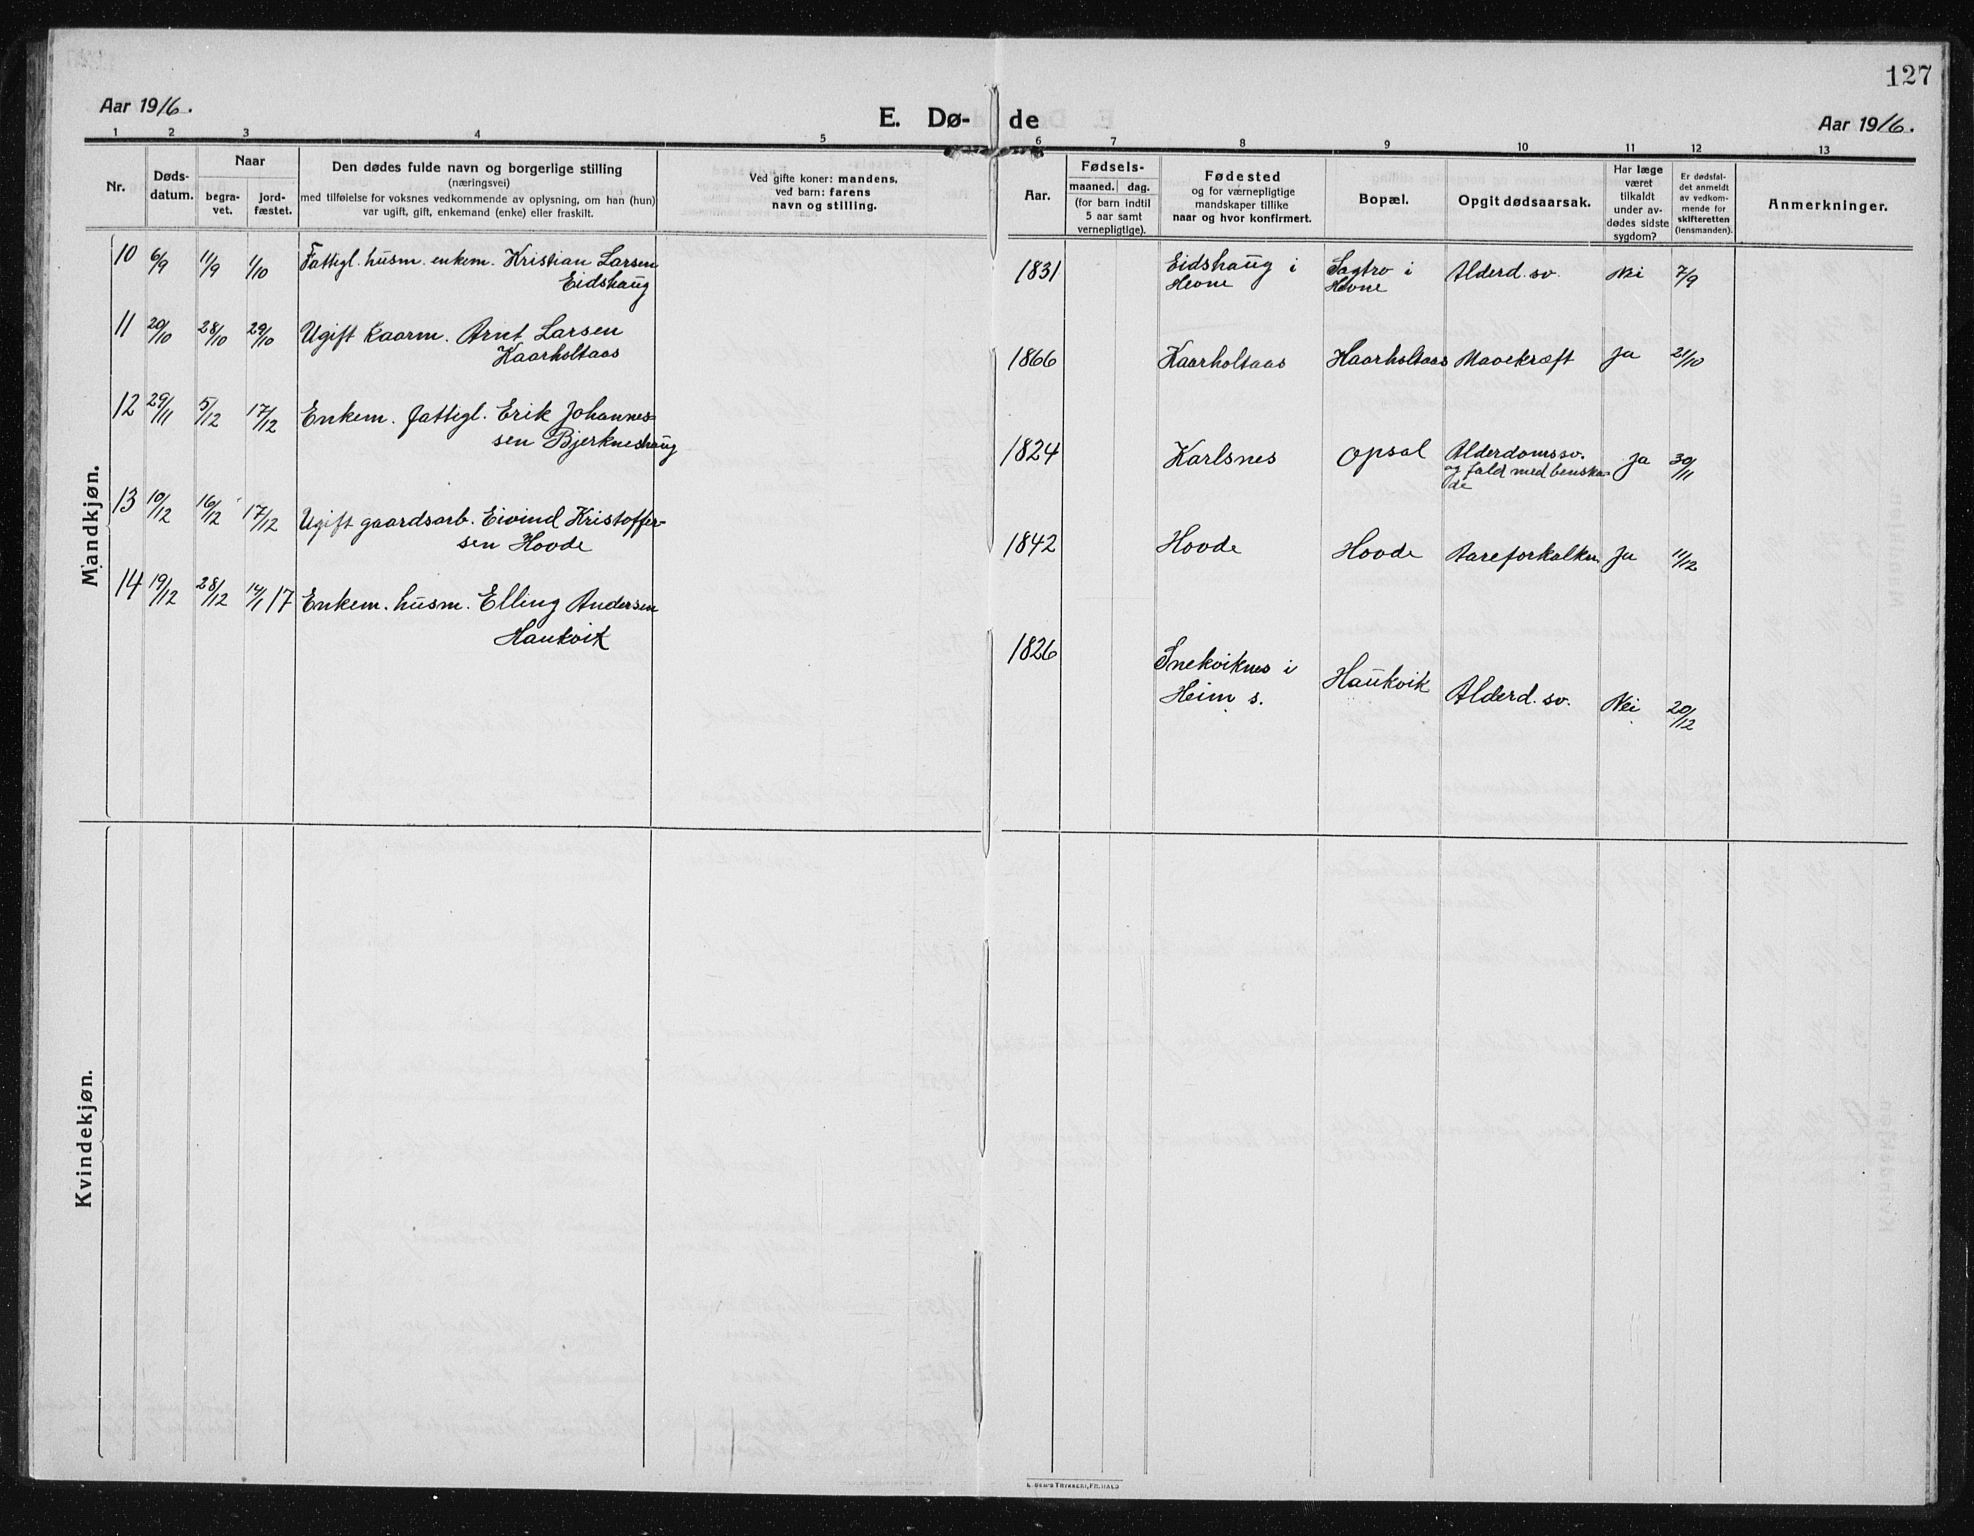 127
Aar 1916.
E. Dø- de
Aar 1916.
1 2 3 4 5 6 7 8 9 10 11 12 13
Nr.
Døds-
datum.
Naar
begra-
vet.
jord-
fæstet.
Den dødes fulde navn og borgerlige stilling
(næringsvei)
med tilføielse for voksnes vedkommende av oplysning, om han (hun)
var ugift, gift, enkemand (enke) eller fraskilt.
Ved gifte koner: mandens,
ved barn: farens
navn og stilling.
Aar.
Fødsels-
maaned. dag.
(for barn indtil
5 aar samt
vernepligtige).
Fødested
og for værnepligtige
mandskaper tillike
naar og hvor konfirmert.
Bopæl.
Opgit dødsaarsak.
Har læge
været
tilkaldt
under av-
dødes sidste
sygdom?
Er dødsfal-
det anmeldt
av vedkom-
mende for
skifteretten
(lensmanden).
Anmerkninger.
Mandkjøn.
10 6/9 11/9 1/10 Fattigl. husm. enkem. Kristian Larsen
Eidshaug
1831 Eidshaug i
Hevne
Sagtro i
Hevne
Alderd. sv. Nei 7/9
11 20/10 28/10 29/10 Ugift kaarm. Arnt Larsen
Kaarholtaas
1866 Kaarholtaas Kaarholtaas Mavekræft Ja 21/10
12 29/11 5/12 17/12 Enkem. fattigl. Erik Johannes-
sen Bjerkneshaug
1824 Karlsnes Opsal Alderdomssv.
og fald med benska-
de
Ja 30/11
13 10/12 16/12 17/12 Ugift gaardsarb. Eivind Kristoffer-
sen Hovde
1842 Hovde Hovde Aareforkalkn. Ja 11/12
14 19/12 28/12 14/1 17 Enkem. husm. Elling Andersen
Haukvik
1826 Snekviknes i
Heim s.
Haukvik Alderd. sv. Nei 20/12
Kvindekjøn.
E. SEM'S TRYKKERI, FR.HALD